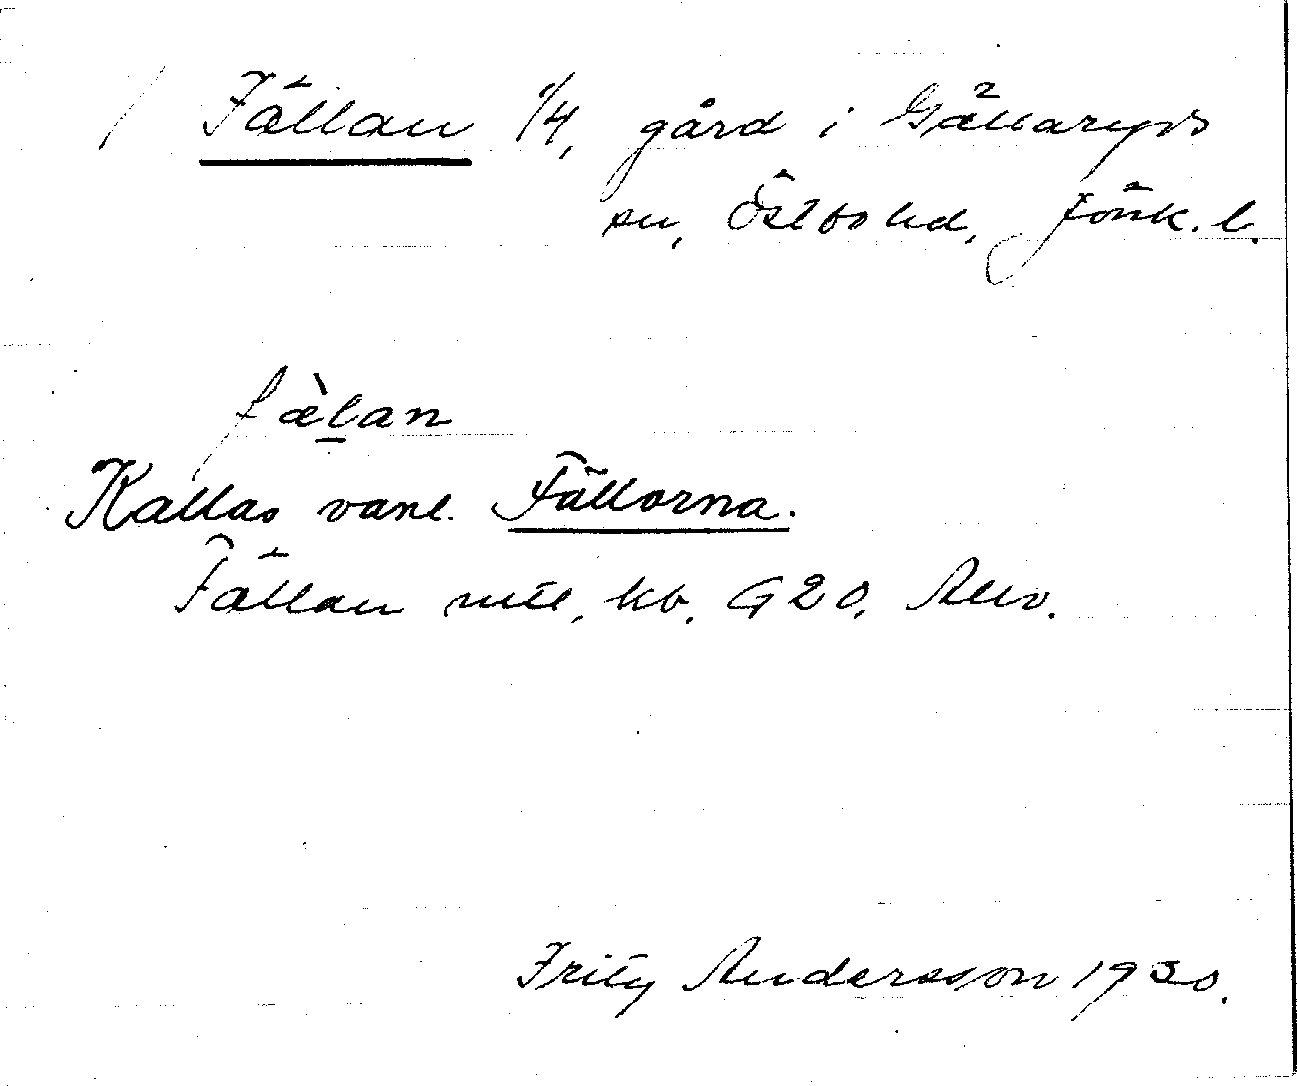 / Fällan 1/4, gård i Gällaryds
sn, Östbo hd, Jönk. l.
fæ̀l̲an
Kallas vanl. Fällorna.
Fällan kb. G20,
Fritz Andersson 1930.